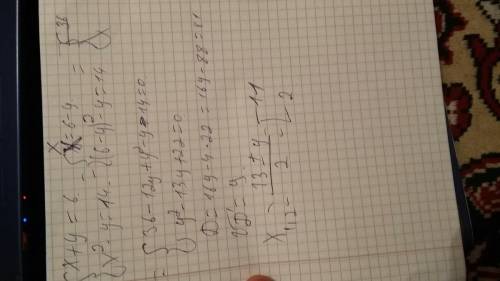 { x + y = 6 = { x = 6 - y = { 36
{ x² - y = 14 = { (6 - y)² - y = 14
= { 36 - 12y + y² - y - 14 = 0
{ y² - 13y + 22 = 0
D = 169 - 4 · 22 = 169 - 88 = 81
√D = 9
x₁,₂ = (13 ± 9) / 2 = 11
2